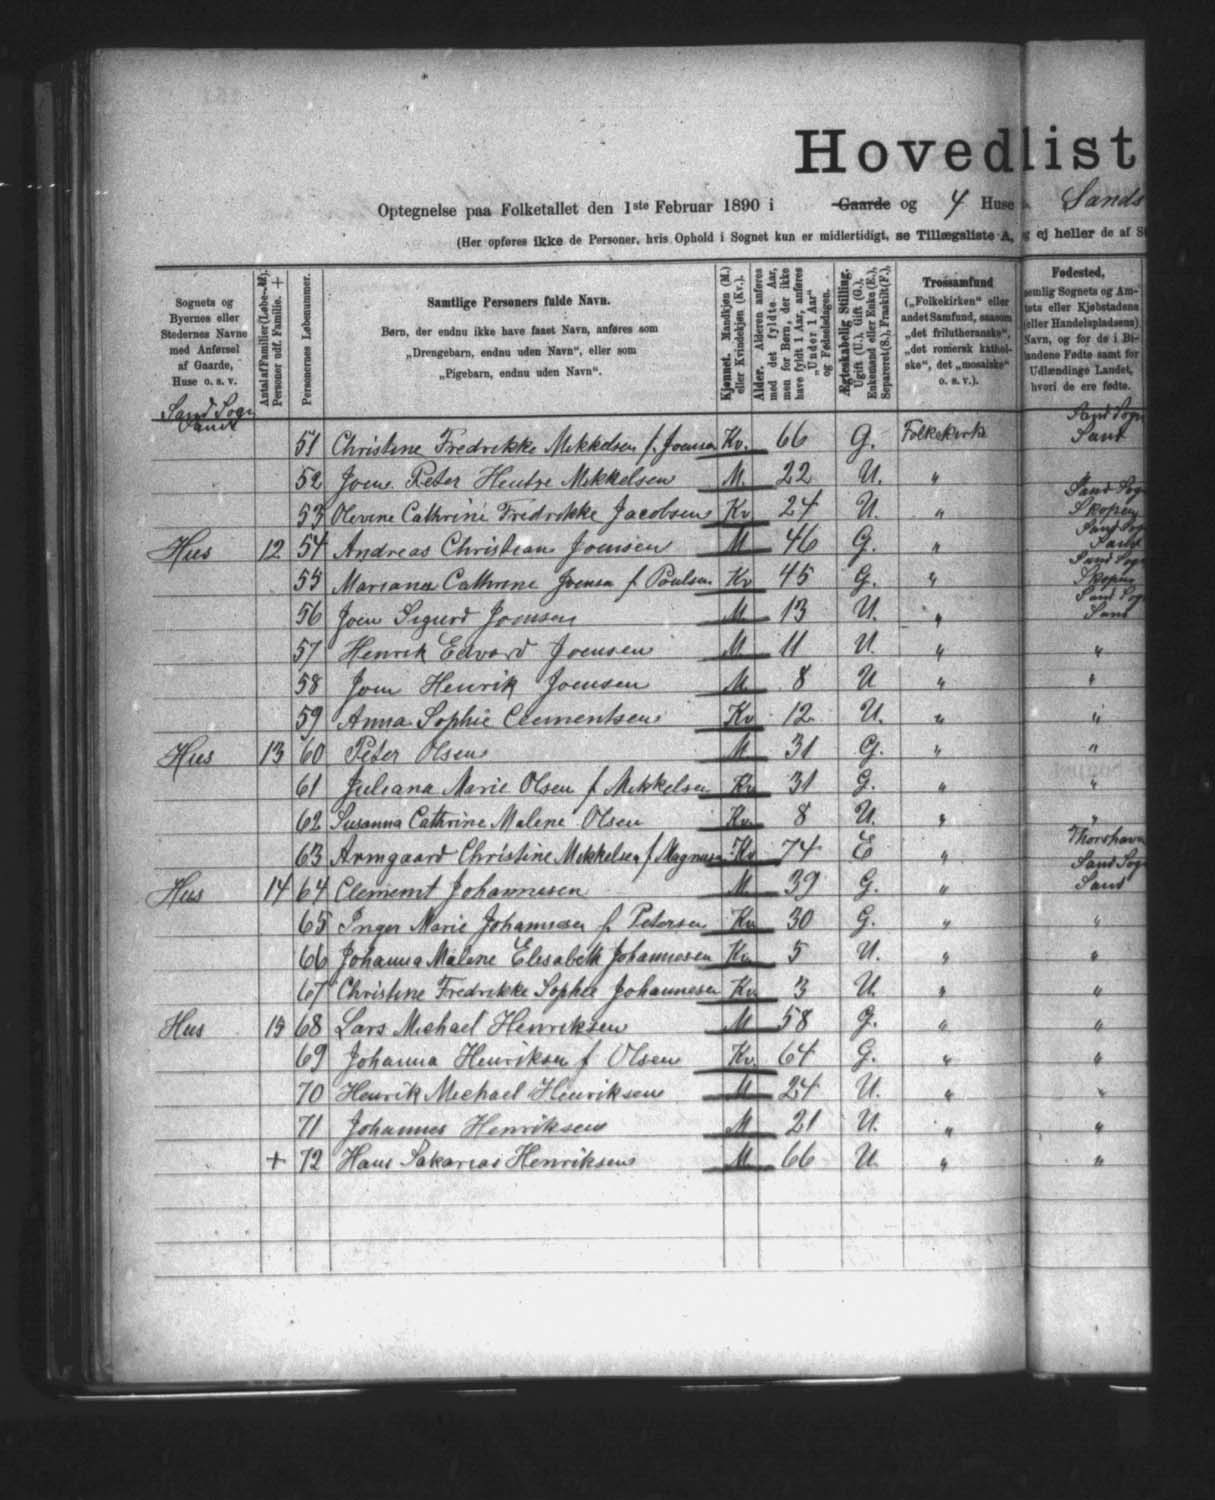 Hovedlist
Optegnelse paa Folketallet den 1ste Februar 1890 i Gaarde og 4 Huse Sands
(Her opføres ikke de Personer, hvis Ophold i Sognet kun er midlertidigt, se Tillægsliste A, og ej heller de af
Sognets og Byernes eller Stedernes Navne med Anførsel af Gaarde, Huse o. s. v.
Antal af Familier (Løbe-№). Personer udf. Familie. +
Personernes Løbenummer.
Samtlige Personers fulde Navn.
Børn, der endnu ikke have faaet Navn, anføres som
„Drengebarn, endnu uden Navn“, eller som
„Pigebarn, endnu uden Navn“.
Kjønnet. Mandkjøn (M.) eller Kvindekjøn (Kv.).
Alder. Alderen anføres med det fyldte Aar, men for Børn, der ikke have fyldt 1 Aar, anføres „Under 1 Aar“ og Fødselsdagen.
Ægteskabelig Stilling. Ugift (U.), Gift (G.), Enkemand eller Enke (E.), Separeret (S.), Fraskilt (F.).
Trossamfund
(„Folkekirken“ eller andet Samfund, saasom „det frilutheranske“, „det romersk katholske“, det „mosaiske“ o. s. v.).
Fødested,
nemlig Sognets og Amtets eller Kjøbstadens (eller Handelspladsens) Navn, og for de i Bilandene Fødte samt for Udlændinge Landet, hvori de ere fødte.
Sand Sogn Sand Sogn
Sand 51 Christine Fredrikke Mikkelsen f. Joensen Kv. 66 G. Folkekirk Sand
52 Joen Peter Hentze Mikkelsen M. 22 U. „
53 Olevine Cathrine Fredrikke Jacobsen Kv 24 U. „ Sand Sogn Skopen
Hus 12 54 Andreas Christian Joensen M 46 G. „ Sand Sogn Sand
55 Mariana Cathrine Joensen f. Poulsen Kv 45 G. „ Sand Sogn Skopen
56 Joen Sigurd Joensen M. 13 U. „ Sand Sogn Sand
57 Henrik Edvard Joensen M 11 U. „ „
58 Joen Henrik Joensen M. 8 U „ „
59 Anna Sophie Clementsen Kv 12 U. „ „
Hus 13 60 Peter Olsen M 31 G. „ „
61 Juliana Marie Olsen f. Mikkelsen Kv 31 G. „ „
62 Susanna Cathrine Malene Olsen Kv. 8 U. „ „
63 Armgaard Christine Mikkelsen f. Magnusen Kv 74 E „ Thorshavn
Hus 14 64 Clement Johannesen M 39 G. „ Sand Sogn Sand
65 Inger Marie Johannesen f. Petersen Kv 30 G. „ „
66 Johanna Malene Elisabeth Johannesen Kv. 5 U. „ „
67 Christine Fredrikke Sophie Johannesen Kv 3 U „ „
Hus 15 68 Lars Michael Henriksen M 58 G. „ „
69 Johanna Henriksen f. Olsen Kv. 64 G. „ „
70 Henrik Michael Henriksen M 24 U. „ „
71 Johannes Henriksen M 21 U. „ „
+ 72 Hans Sakarias Henriksen M 66 U „ „